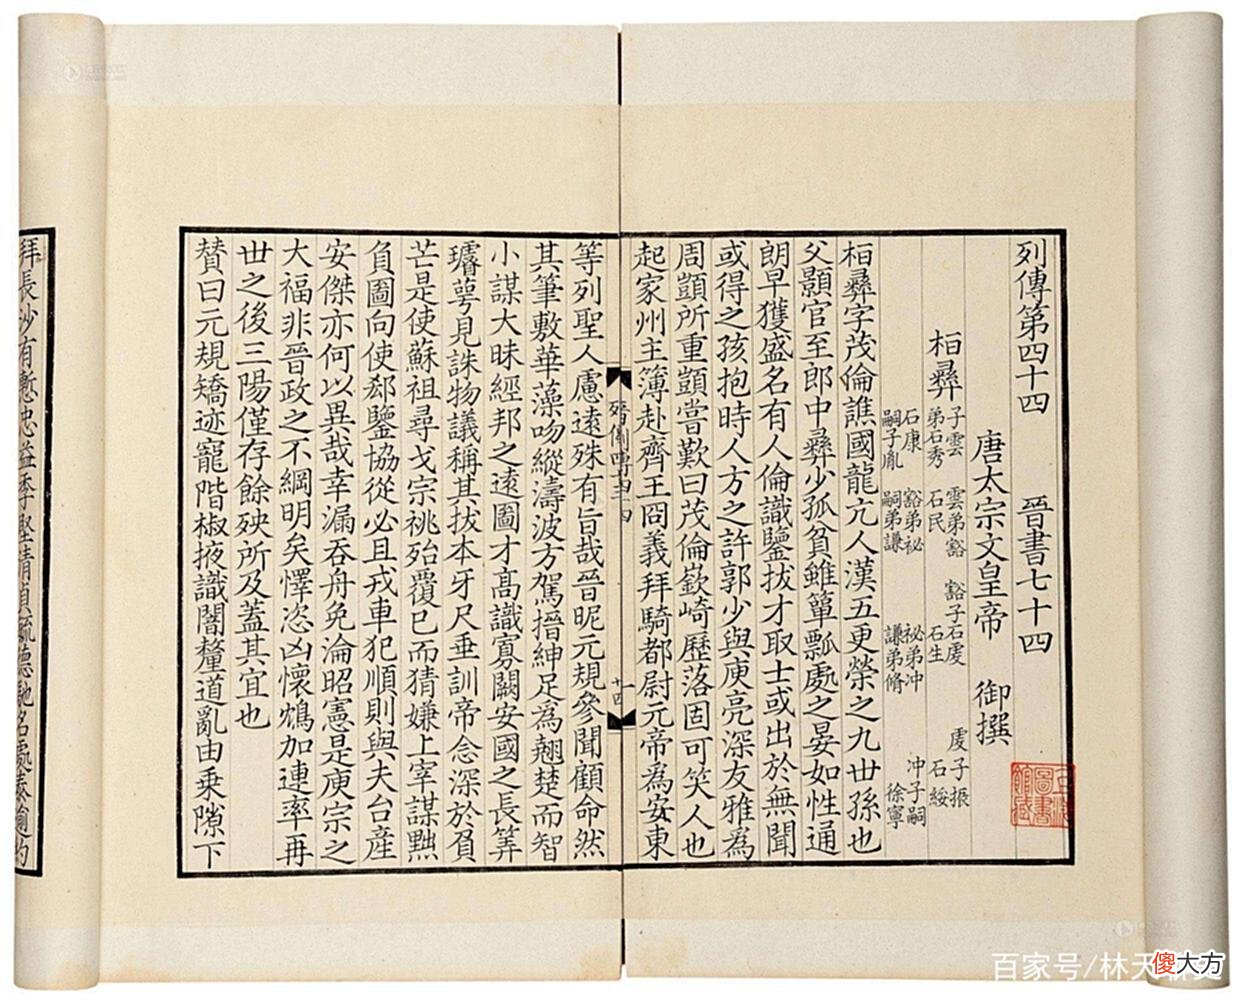 列傳第四十四 晉書七十四
唐太宗文皇帝 御撰
桓彝 子雲 雲弟豁 豁子石虔 虔子振
弟石秀 石民 石生 石綏
石康 豁弟祕 祕弟沖 沖子嗣
嗣子胤 嗣弟謙 謙弟脩 徐寧
桓彝字茂倫譙國龍亢人漢五更榮之九世孫也
父顥官至郎中彝少孤貧雖簞瓢處之晏如性通
朗早獲盛名有人倫識鑒拔才取士或出於無聞
或得之孩抱時人方之許郭少與庾亮深友雅為
周顗所重顗嘗歎曰茂倫嶔崎歷落固可笑人也
起家州主簿赴齊王冏義拜騎都尉元帝為安東
等列聖人慮遠殊有旨哉晉昵元規參聞顧命然
其筆敷華藻吻縱濤波方駕搢紳足為翹楚而智
小謀大昧經邦之遠圖才高識寡闕安國之長筭
璿萼見誅物議稱其拔本牙尺垂訓帝念深於負
芒是使蘇祖尋戈宗祧殆覆已而猜嫌上宰謀黜
負圖向使郄鑒協從必且戎車犯順則與夫台產
安傑亦何以異哉幸漏吞舟免淪昭憲是庾宗之
大福非晉政之不綱明矣懌恣凶懷鴆加連率再
世之後三陽僅存餘殃所及蓋其宜也
贊曰元規矯迹寵階椒掖識闇釐道亂由乘隙下
拜長沙有慙忠益季堅清貞毓德馳名處泰逾約
百家号/林天
傻大方